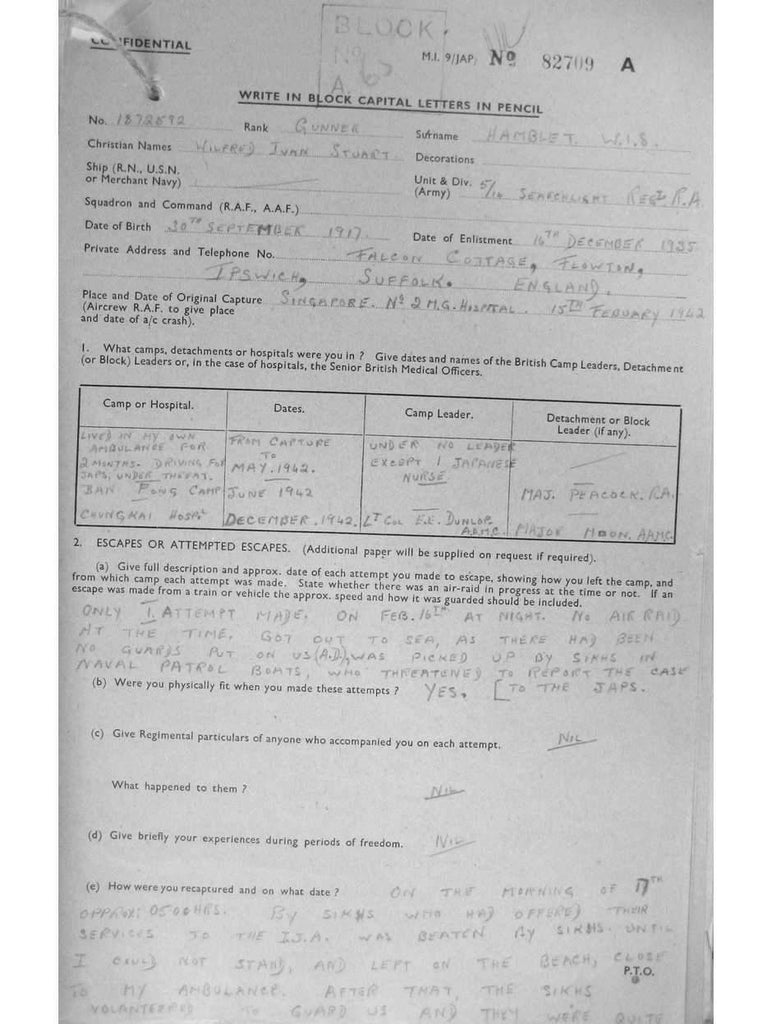 CONFIDENTIAL
BLOCK.
No 6
A.
M.I. 9/JAP. No 82709 A
WRITE IN BLOCK CAPITAL LETTERS IN PENCIL
No. 1872892 Rank GUNNER Surname HAMBLET W.I.S.
Christian Names WILFRED IVAN STUART Decorations
Ship (R.N., U.S.N. or Merchant Navy)
Unit & Div. (Army) 5/16 SEARCHLIGHT REGT R.A.
Squadron and Command (R.A.F., A.A.F.)
Date of Birth 20TH SEPTEMBER 1917. Date of Enlistment 16TH DECEMBER 1935
Private Address and Telephone No. FALCON COTTAGE, FLOWTON,
IPSWICH, SUFFOLK. ENGLAND.
Place and Date of Original Capture SINGAPORE. No 2 M.G. HOSPITAL. 15TH FEBUARY 1942
(Aircrew R.A.F. to give place
and date of a/c crash).
1. What camps, detachments or hospitals were you in ? Give dates and names of the British Camp Leaders, Detachment
(or Block) Leaders or, in the case of hospitals, the Senior British Medical Officers.
Camp or Hospital. Dates. Camp Leader. Detachment or Block Leader (if any).
LIVED IN MY OWN AMBULANCE FOR 2 MONTHS. DRIVING FOR JAPS, UNDER THREAT. FROM CAPTURE TO MAY. 1942. UNDER NO LEADER EXCEPT 1 JAPANESE NURSE
BAN PONG CAMP JUNE 1942 MAJ. PEACOCK. R.A.
CHUNGKAI HOSPL DECEMBER. 1942. LT COL E.E. DUNLOP. AAMC. MAJOR MOON. AAMC.
2. ESCAPES OR ATTEMPTED ESCAPES. (Additional paper will be supplied on request if required).
(a) Give full description and approx. date of each attempt you made to escape, showing how you left the camp, and
from which camp each attempt was made. State whether there was an air-raid in progress at the time or not. If an
escape was made from a train or vehicle the approx. speed and how it was guarded should be included.
ONLY 1 ATTEMPT MADE. ON FEB. 16TH AT NIGHT. NO AIR RAID
AT THE TIME. GOT OUT TO SEA, AS THERE HAD BEEN
NO GUARDS PUT ON US (A.D.), WAS PICKED UP BY SIKHS IN
NAVAL PATROL BOATS, WHO THREATENED TO REPORT THE CASE
(b) Were you physically fit when you made these attempts ? YES. [TO THE JAPS.
(c) Give Regimental particulars of anyone who accompanied you on each attempt. NIL
What happened to them ? NIL
(d) Give briefly your experiences during periods of freedom. NIL
(e) How were you recaptured and on what date ? ON THE MORNING OF 17TH
APPROX: 0500HRS. BY SIKHS WHO HAD OFFERED THEIR
SERVICES TO THE I.J.A. WAS BEATEN BY SIKHS. UNTIL
I COULD NOT STAND, AND LEFT ON THE BEACH, CLOSE
P.T.O.
TO MY AMBULANCE. AFTER THAT, THE SIKHS
VOLUNTEERED TO GUARD US AND THEY WERE QUITE